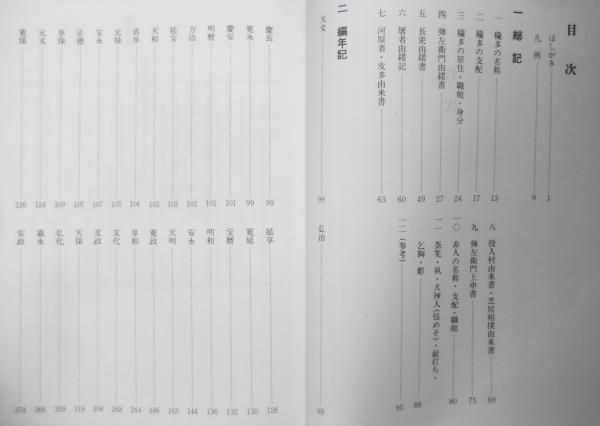 目次
はしがき 1
凡例 9
一 総記
一 穢多の名称 13
二 穢多の支配 17
三 穢多の居住・職能・身分 24
四 弾左衛門由緒書 27
五 長吏由緒書 49
六 屠者由緒記 60
七 河原者・皮多由来書 63
八 役人村由来書・芝居相撲由来書 69
九 弾左衛門上申書 75
一〇 非人の名称・支配・職能 80
一一 茶筅・夙・犬神人(弦めそ)・鉦打ち・
乞胸・ 88
一二 (参考) 95
二 編年記
天文 99
弘治 99
慶長 99
寛永 99
慶安 101
明暦 101
万治 102
延宝 102
天和 103
貞享 104
元禄 105
宝永 107
正徳 107
享保 109
元文 124
寛保 126
延享 128
寛延 130
宝暦 132
明和 136
安永 144
天明 163
寛政 186
享和 244
文化 268
文政 306
天保 319
弘化 359
嘉永 366
安政 374